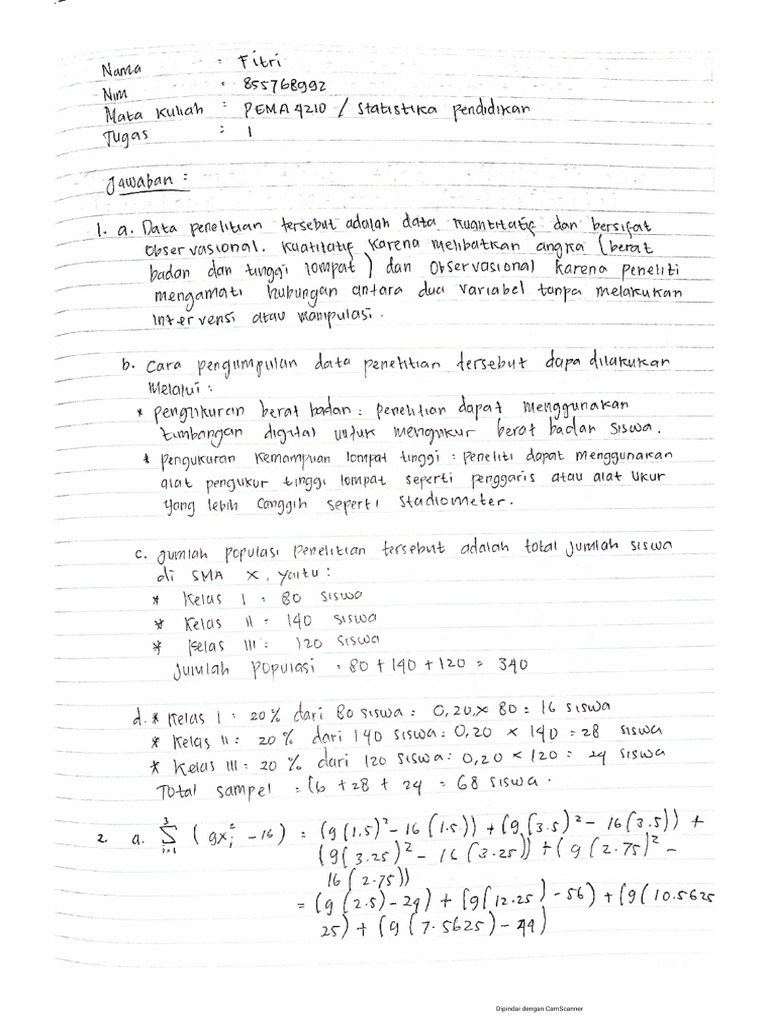 Nama : Fitri
Nim : 855768992
Mata Kuliah : PEMA 4210 / Statistika Pendidikan
Tugas : 1
Jawaban :
1. a. Data penelitian tersebut adalah data Kuantitatif dan bersifat
Observasional. Kuatitatif Karena melibatkan angka (berat
badan dan tinggi lompat) dan Observasional karena peneliti
mengamati hubungan antara dua variabel tanpa melakukan
Intervensi atau manipulasi.
b. Cara pengumpulan data penelitian tersebut dapa dilakukan
Melalui :
* pengukuran berat badan : penelitian dapat menggunakan
timbangan digital untuk mengukur berat badan siswa.
* pengukuran Kemampuan lompat tinggi : peneliti dapat menggunakan
alat pengukur tinggi lompat seperti penggaris atau alat ukur
yang lebih canggih seperti Stadiometer.
c. Jumlah populasi penelitian tersebut adalah total jumlah siswa
di SMA X, yaitu :
* Kelas I : 80 siswa
* Kelas II = 140 siswa
* Kelas III : 120 siswa
Jumlah Populasi = 80 + 140 + 120 = 340
d. * Kelas I : 20% dari 80 siswa : 0,20 × 80 = 16 siswa
* Kelas II : 20% dari 140 siswa : 0,20 × 140 = 28 siswa
* Kelas III : 20% dari 120 siswa : 0,20 × 120 = 24 siswa
Total sampel = 16 + 28 + 24 = 68 siswa.
2. a. 3 Σ i=1 (9xi² - 16) = (9(1.5)² - 16(1.5)) + (9(3.5)² - 16(3.5)) +
(9(3.25)² - 16(3.25)) + (9(2.75)² -
16(2.75))
= (9(2.5) - 24) + (9(12.25) - 56) + (9(10.5625
25) + (9(7.5625) - 44)
Dipindai dengan CamScanner